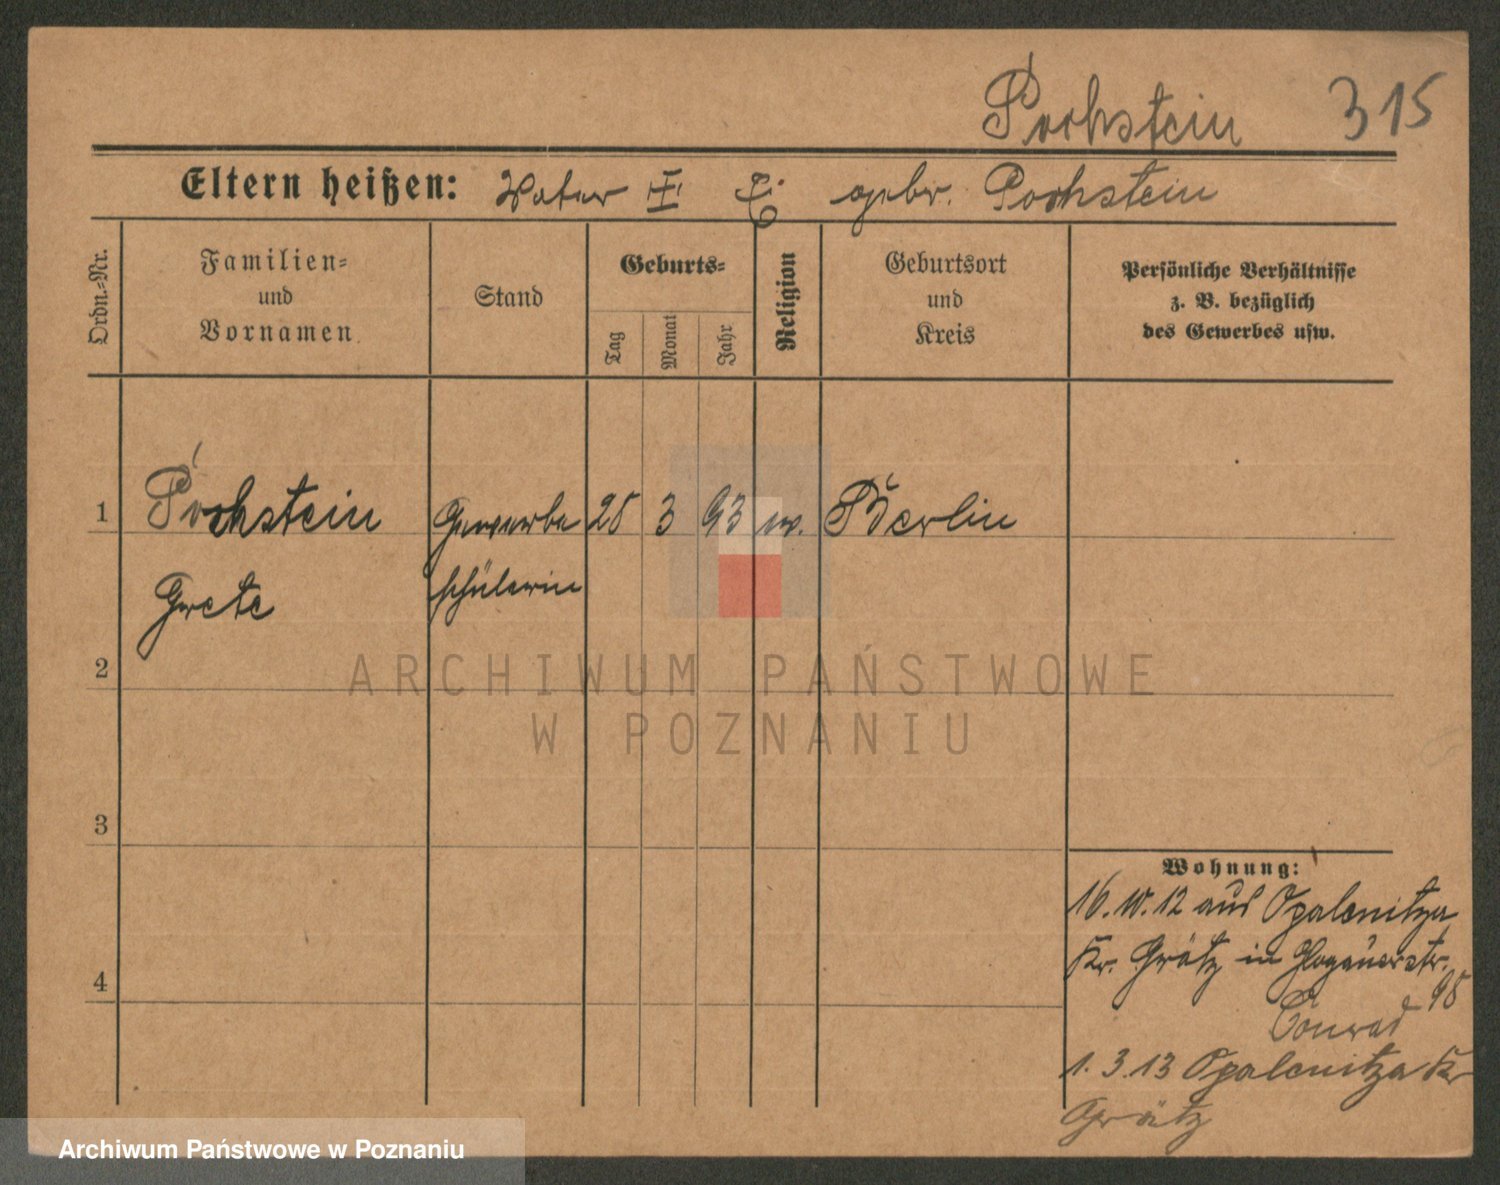 Pochstein 315
Eltern heißen: Vater gebr. Pochstein
Ordn.-Nr.
Familien-
und
Vornamen
Stand
Geburts-
Tag
Monat
Jahr
Religion
Geburtsort
und
Kreis
Persönliche Verhältnisse
z. B. bezüglich
des Gewerbes usw.
1 Pochstein Gewerbe 25 3 93 Berlin
Grete schülerin
2
3
4
Wohnung:
16.10.12 aus Opalenitza
Kr. Grätz in Glogauerstr.
98
Conrad
1.3.13 Opalenitza Kr
Grätz
ARCHIWUM PAŃSTWOWE
W POZNANIU
Archiwum Państwowe w Poznaniu